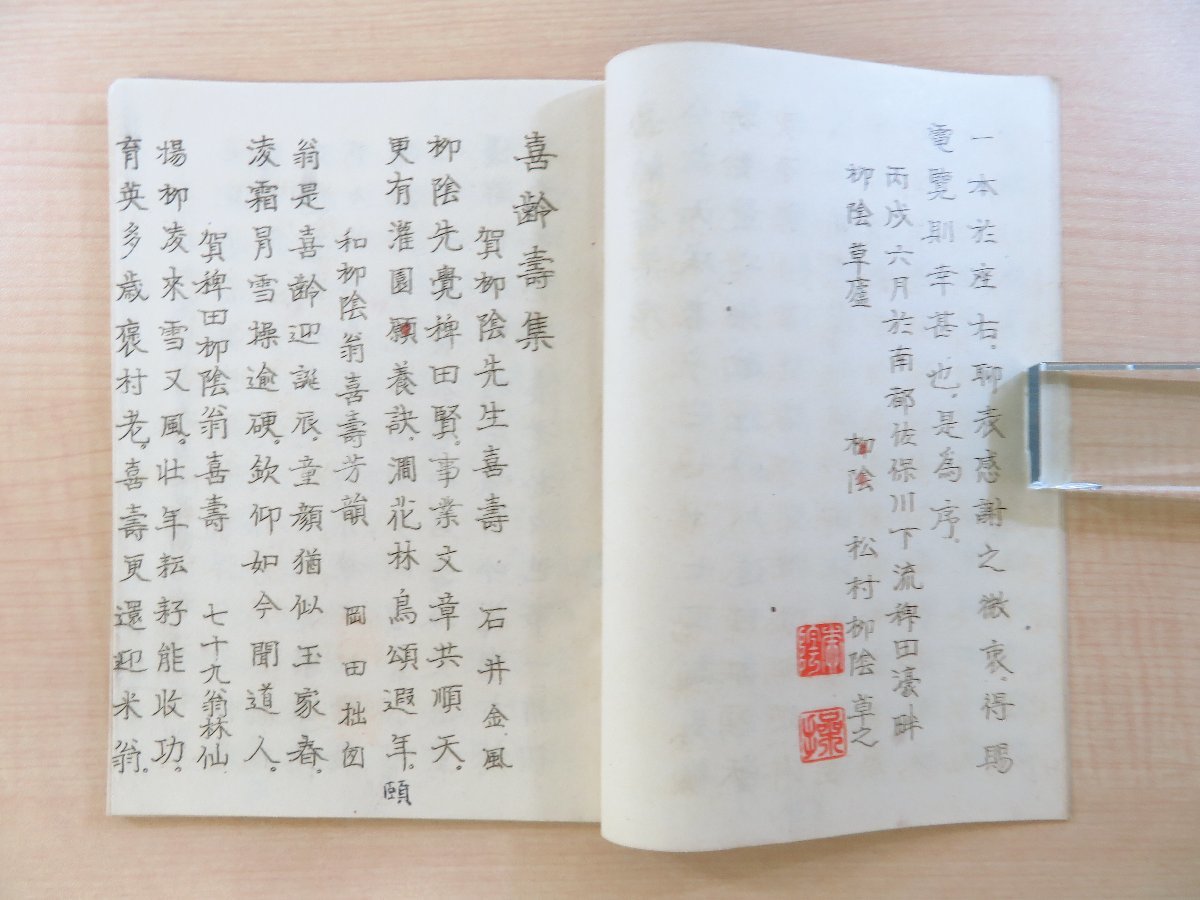 一本於座右。聊表感謝之微衷。得賜
電覽則幸甚也。是為序。
丙戌六月於南都佐保川下流稗田濠畔
柳陰草廬　柳陰　松村柳陰草之
喜齡壽集
賀柳陰先生喜壽　石井金風
柳陰先覺稗田賢。事業文章共順天。
更有灌園願養訣。澗花林鳥頌遐年。頤
和柳陰翁喜壽芳韻　岡田拙
翁是喜齡迎誕辰。童顏猶似玉家春。
淩霜冐雪操逾硬。欽仰如今聞道人。
賀稗田柳陰翁喜壽　七十九翁林仙
楊柳凌來雪又風。壯年耘耔能收功。
育英多歲褒村老。喜壽更還迎米翁。